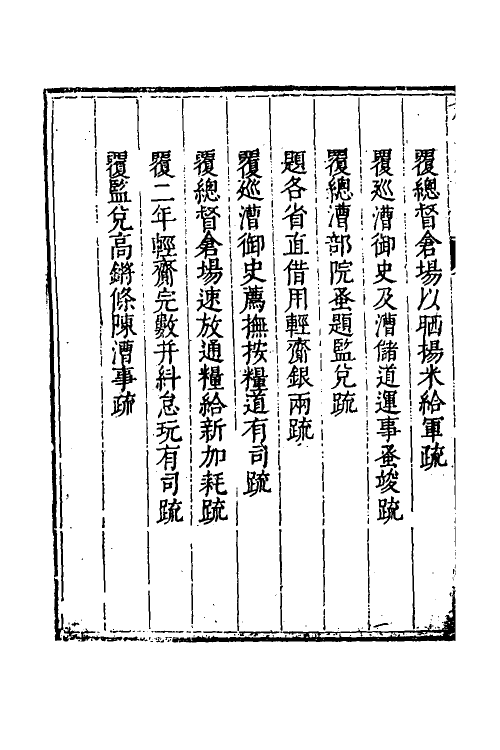 覆總督倉場以晒楊米給軍疏
覆廵漕御史及漕儲道運事蚤竣疏
覆總漕部院蚤題監兌疏
題各省直借用輕齎銀兩疏
覆廵漕御史薦撫按糧道有司疏
覆總督倉場速放通糧給新加耗疏
覆二年輕齎完數并糾怠玩有司疏
覆監兌高鏘條陳漕事疏